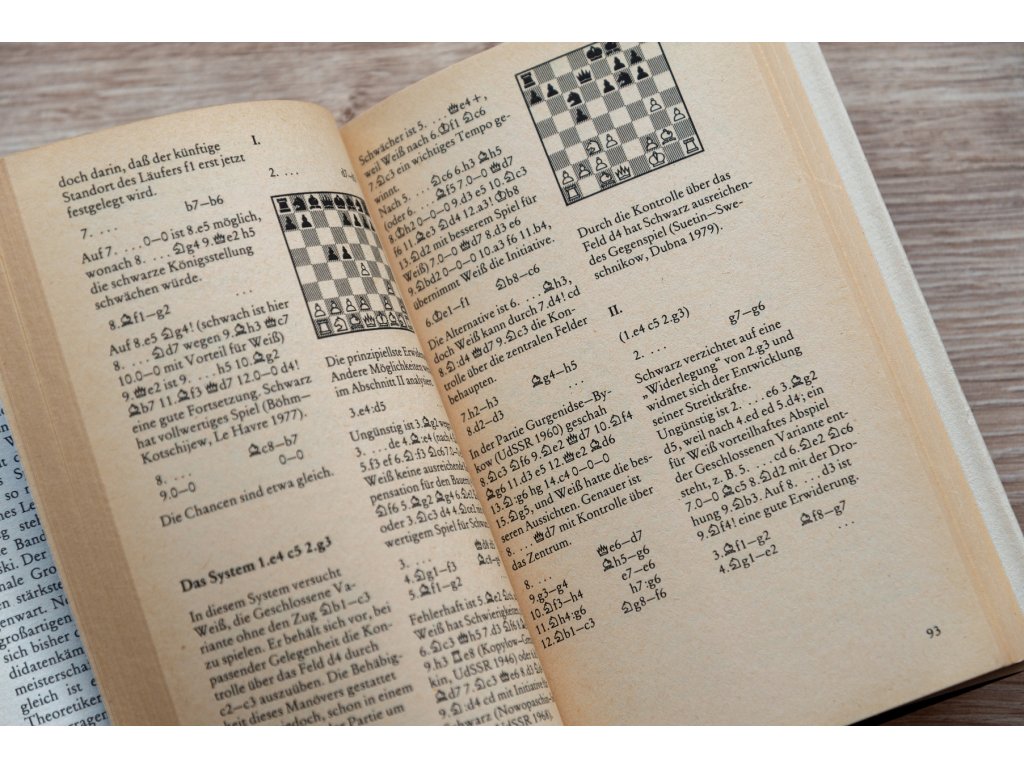 doch darin, daß der künftige
Standort des Läufers f1 erst jetzt
festgelegt wird.
7. .... b7–b6
Auf 7. .... 0–0 ist 8.e5 möglich,
wonach 8. .... ♘g4 9.♕e2 h5
die schwarze Königsstellung
schwächen würde.
8.♗f1–g2 ...
Auf 8.e5 ♘g4! (schwach ist hier
8. .... ♘d7 wegen 9.♗h3 ♕c7
10.0–0 mit Vorteil für Weiß)
9.♕e2 ist 9. .... h5 10.♗g2
♗b7 11.♗f3 ♕d7 12.0–0 d4!
eine gute Fortsetzung. Schwarz
hat vollwertiges Spiel (Böhm–
Kotschijew, Le Havre 1977).
8. .... ♗c8–b7
9.0–0 0–0
Die Chancen sind etwa gleich.
Das System 1.e4 c5 2.g3
In diesem System versucht
Weiß, die Geschlossene Va-
riante ohne den Zug ♘b1–c3
zu spielen. Er behält sich vor, bei
passender Gelegenheit die Kon-
trolle über das Feld d4 durch
c2–c3 auszuüben. Die Behäbig-
keit dieses Manövers gestattet
jedoch, schon in einem
Partie um
I.
2. ....
Die prinzipiellste
Andere Möglichkeiten
im Abschnitt II
3.e4:d5
Ungünstig ist 3.♗g2
3. .... de 4.♗:e4
5.f3 ef 6.♘:f3 ♘c6
Weiß keine
pensation für den
♘f6 5.♗g2 ♗g4
oder 3.♘c3 d4
wertigem Spiel für
3. ....
4.♘g1–f3
5.♗f1–g2
Fehlerhaft ist 5.♗e2
Weiß hat
6.♘c3 ♕h5 7.d3
9.h3 ♖e8 (Kopylow–
kin, UdSSR 1946)
♗d7 7.♘c3 ♕e6
9.♘:d4 cd mit
Schwarz (Nowopaschin
UdSSR 1968)
Schwächer ist 5. .... ♕e4+,
weil Weiß nach 6.♔f1 ♘c6
7.♘c3 ein wichtiges Tempo ge-
winnt.
Nach 5. .... ♘c6 6.h3 ♗h5
(oder 6. .... ♗f5 7.0–0 ♕d7
8.♔h2 0–0–0 9.d3 e5 10.♘c3
f6 11.♗e3 ♘d4 12.a3! ♔b8
13.♘d2 mit besserem Spiel für
Weiß) 7.0–0 ♕d7 8.d3 e6
9.♘bd2 0–0–0 10.a3 f6 11.b4,
übernimmt Weiß die Initiative.
6.♔e1–f1 ♘b8–c6
Die Alternative ist 6. .... ♗h3,
doch Weiß kann durch 7.d4! cd
8.♘:d4 ♕d7 9.♘c3 die Kon-
trolle über die zentralen Felder
behaupten.
7.h2–h3 ♗g4–h5
8.d2–d3 ...
In der Partie Gurgenidse–By-
kow (UdSSR 1960) geschah
8.♘c3 ♘f6 9.♘e2 ♕d7 10.♘f4
♗g6 11.d3 e5 12.♕e2 ♗d6
13.♘:g6 hg 14.c4 0–0–0
15.♘g5, und Weiß hatte die bes-
seren Aussichten. Genauer ist
8. .... ♕d7 mit Kontrolle über
das Zentrum.
8. .... ♕e6–d7
9.g3–g4 ♗h5–g6
10.♘f3–h4 e7–e6
11.♘h4:g6 h7:g6
12.♘b1–c3 ♘g8–f6
Durch die Kontrolle über das
Feld d4 hat Schwarz ausreichen-
des Gegenspiel (Suetin–Swe-
schnikow, Dubna 1979).
II.
(1.e4 c5 2.g3)
2. .... g7–g6
Schwarz verzichtet auf eine
„Widerlegung“ von 2.g3 und
widmet sich der Entwicklung
seiner Streitkräfte.
Ungünstig ist 2. .... e6 3.♗g2
d5, weil nach 4.ed ed 5.d4; ein
für Weiß vorteilhaftes Abspiel
der Geschlossenen Variante ent-
steht, z. B. 5. .... cd 6.♘e2 ♘c6
7.0–0 ♗c5 8.♘d2 mit der Dro-
hung 9.♘b3. Auf 8. .... d3 ist
9.♘f4! eine gute Erwiderung.
3.♗f1–g2 ♗f8–g7
4.♘g1–e2 ...
93